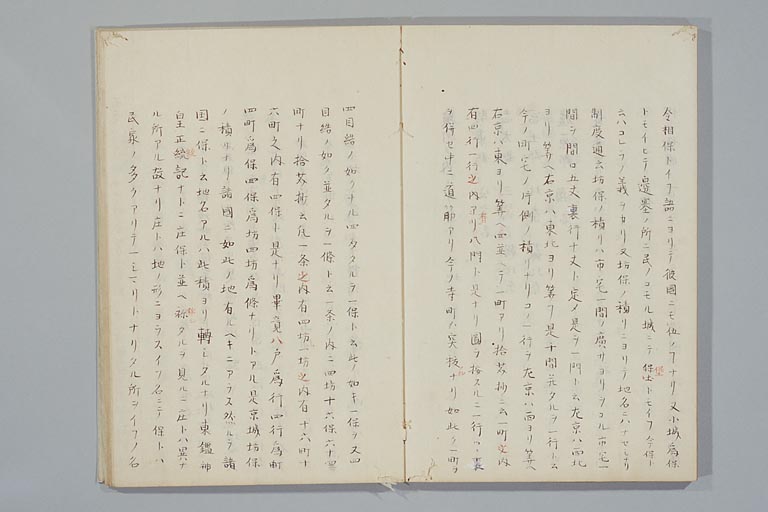 令相保トイフ語ニヨリテ彼國ニモ伍ノフナリ又小城爲保
トモイヒテ邉塁ノ所ニ民ノコモル城ニテ保士トモイフ今保ト
云ハコレラノ義ヲカリ又坊保ノ積リニヨリテ地名ニハナセシナリ
制度通云坊保ノ積リハ市宅一間ノ廣サヨリヲコル市宅一
間ヲ間口五丈裏行十丈ト定メ是ヲ一門ト云左京ハ西北
ヨリ算ヘ右京ハ東北ヨリ算フ是十間元タルヲ一行ト云
今ノ町宅ノ片側ノ積リナリコノ一行ヲ左京ハ西ヨリ算ヘ
右京ハ東ヨリ算ヘ四並ヘテ一町アリ拾芥抄ニ云一町之内
有四行一行之内アリ八門ト是ナリ圖ヲ按スルニ一行ツヽ裏
ヲ併セ中ニ道筋アリ今ノ寺町ノ突抜ナリ如此ク一町ヲ
四目結ノ如クナル四ツタヽルヲ一保ト云此ノ如キ一保ヲ又四
目結ノ如ク並タルヲ一條ト云一条ノ内ニ四坊十六保六十四
町ナリ拾芥抄云凡一条之内有四坊一坊之内有十六町十
六町之内有四保ト是ナリ畢竟八戸爲行四行爲町
四町爲保四保爲坊四坊爲條ナリトアル是京城坊保
ノ積リナリ諸國ニ如此ノ地有ルヘキニアラス然ルヲ諸
国ニ保ト云地名アルハ此積ヨリ轉シタルナリ東鑑神
皇正統記ナトニ庄保ト並ヘ称タルヲ見ルニ庄トハ異ナ
ル所アル故ナリ庄トハ地ノ形ニヨラスイフ名ニテ保トハ
民家ノ多クアリテ一シマリトナリタル所ヲイフノ名